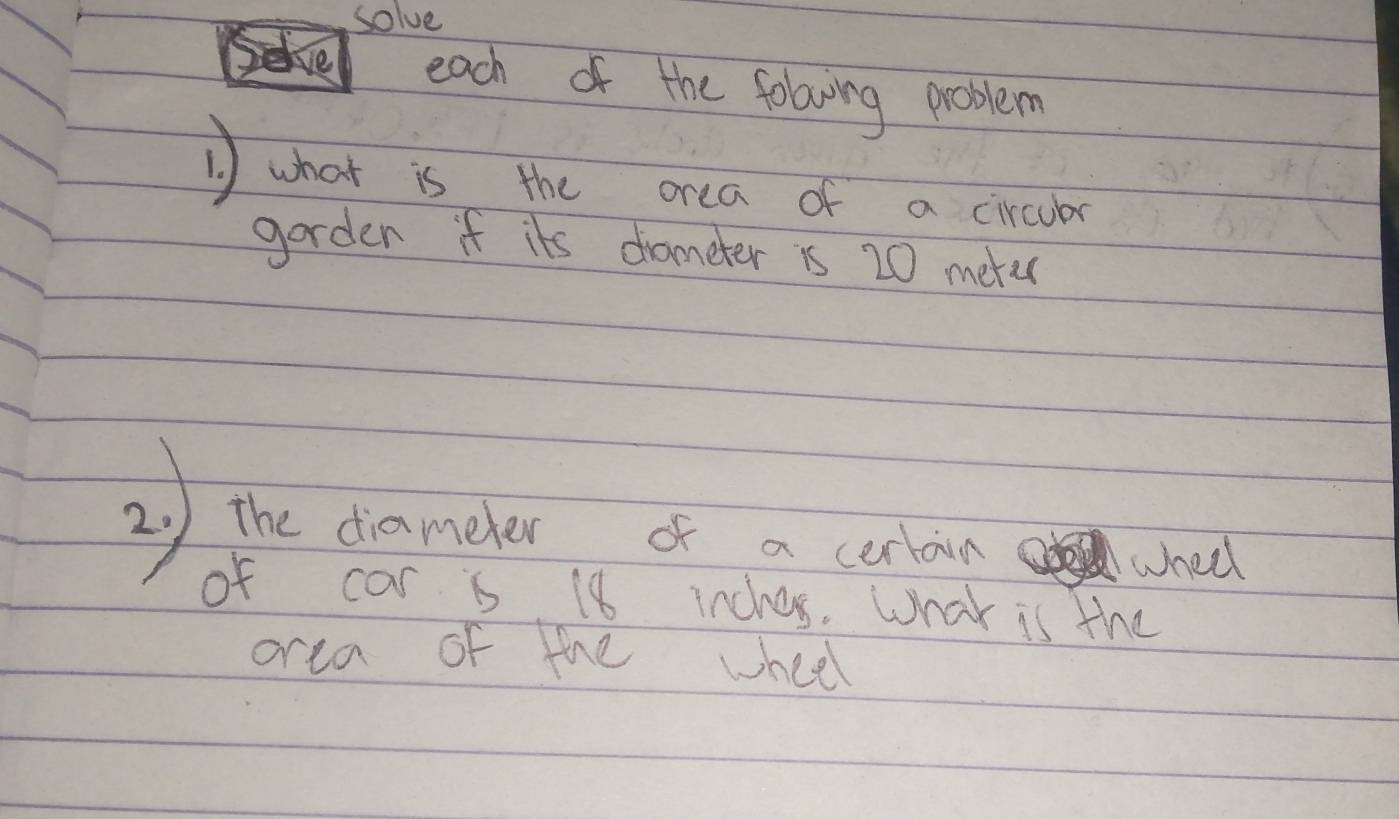 solve
Solve each of the folowing problem
1.) what is the area of a circular
garden if its diameter is 20 meter
2.) The diameter of a certain wheel
of car is 18 inches. What is the
area of the wheel